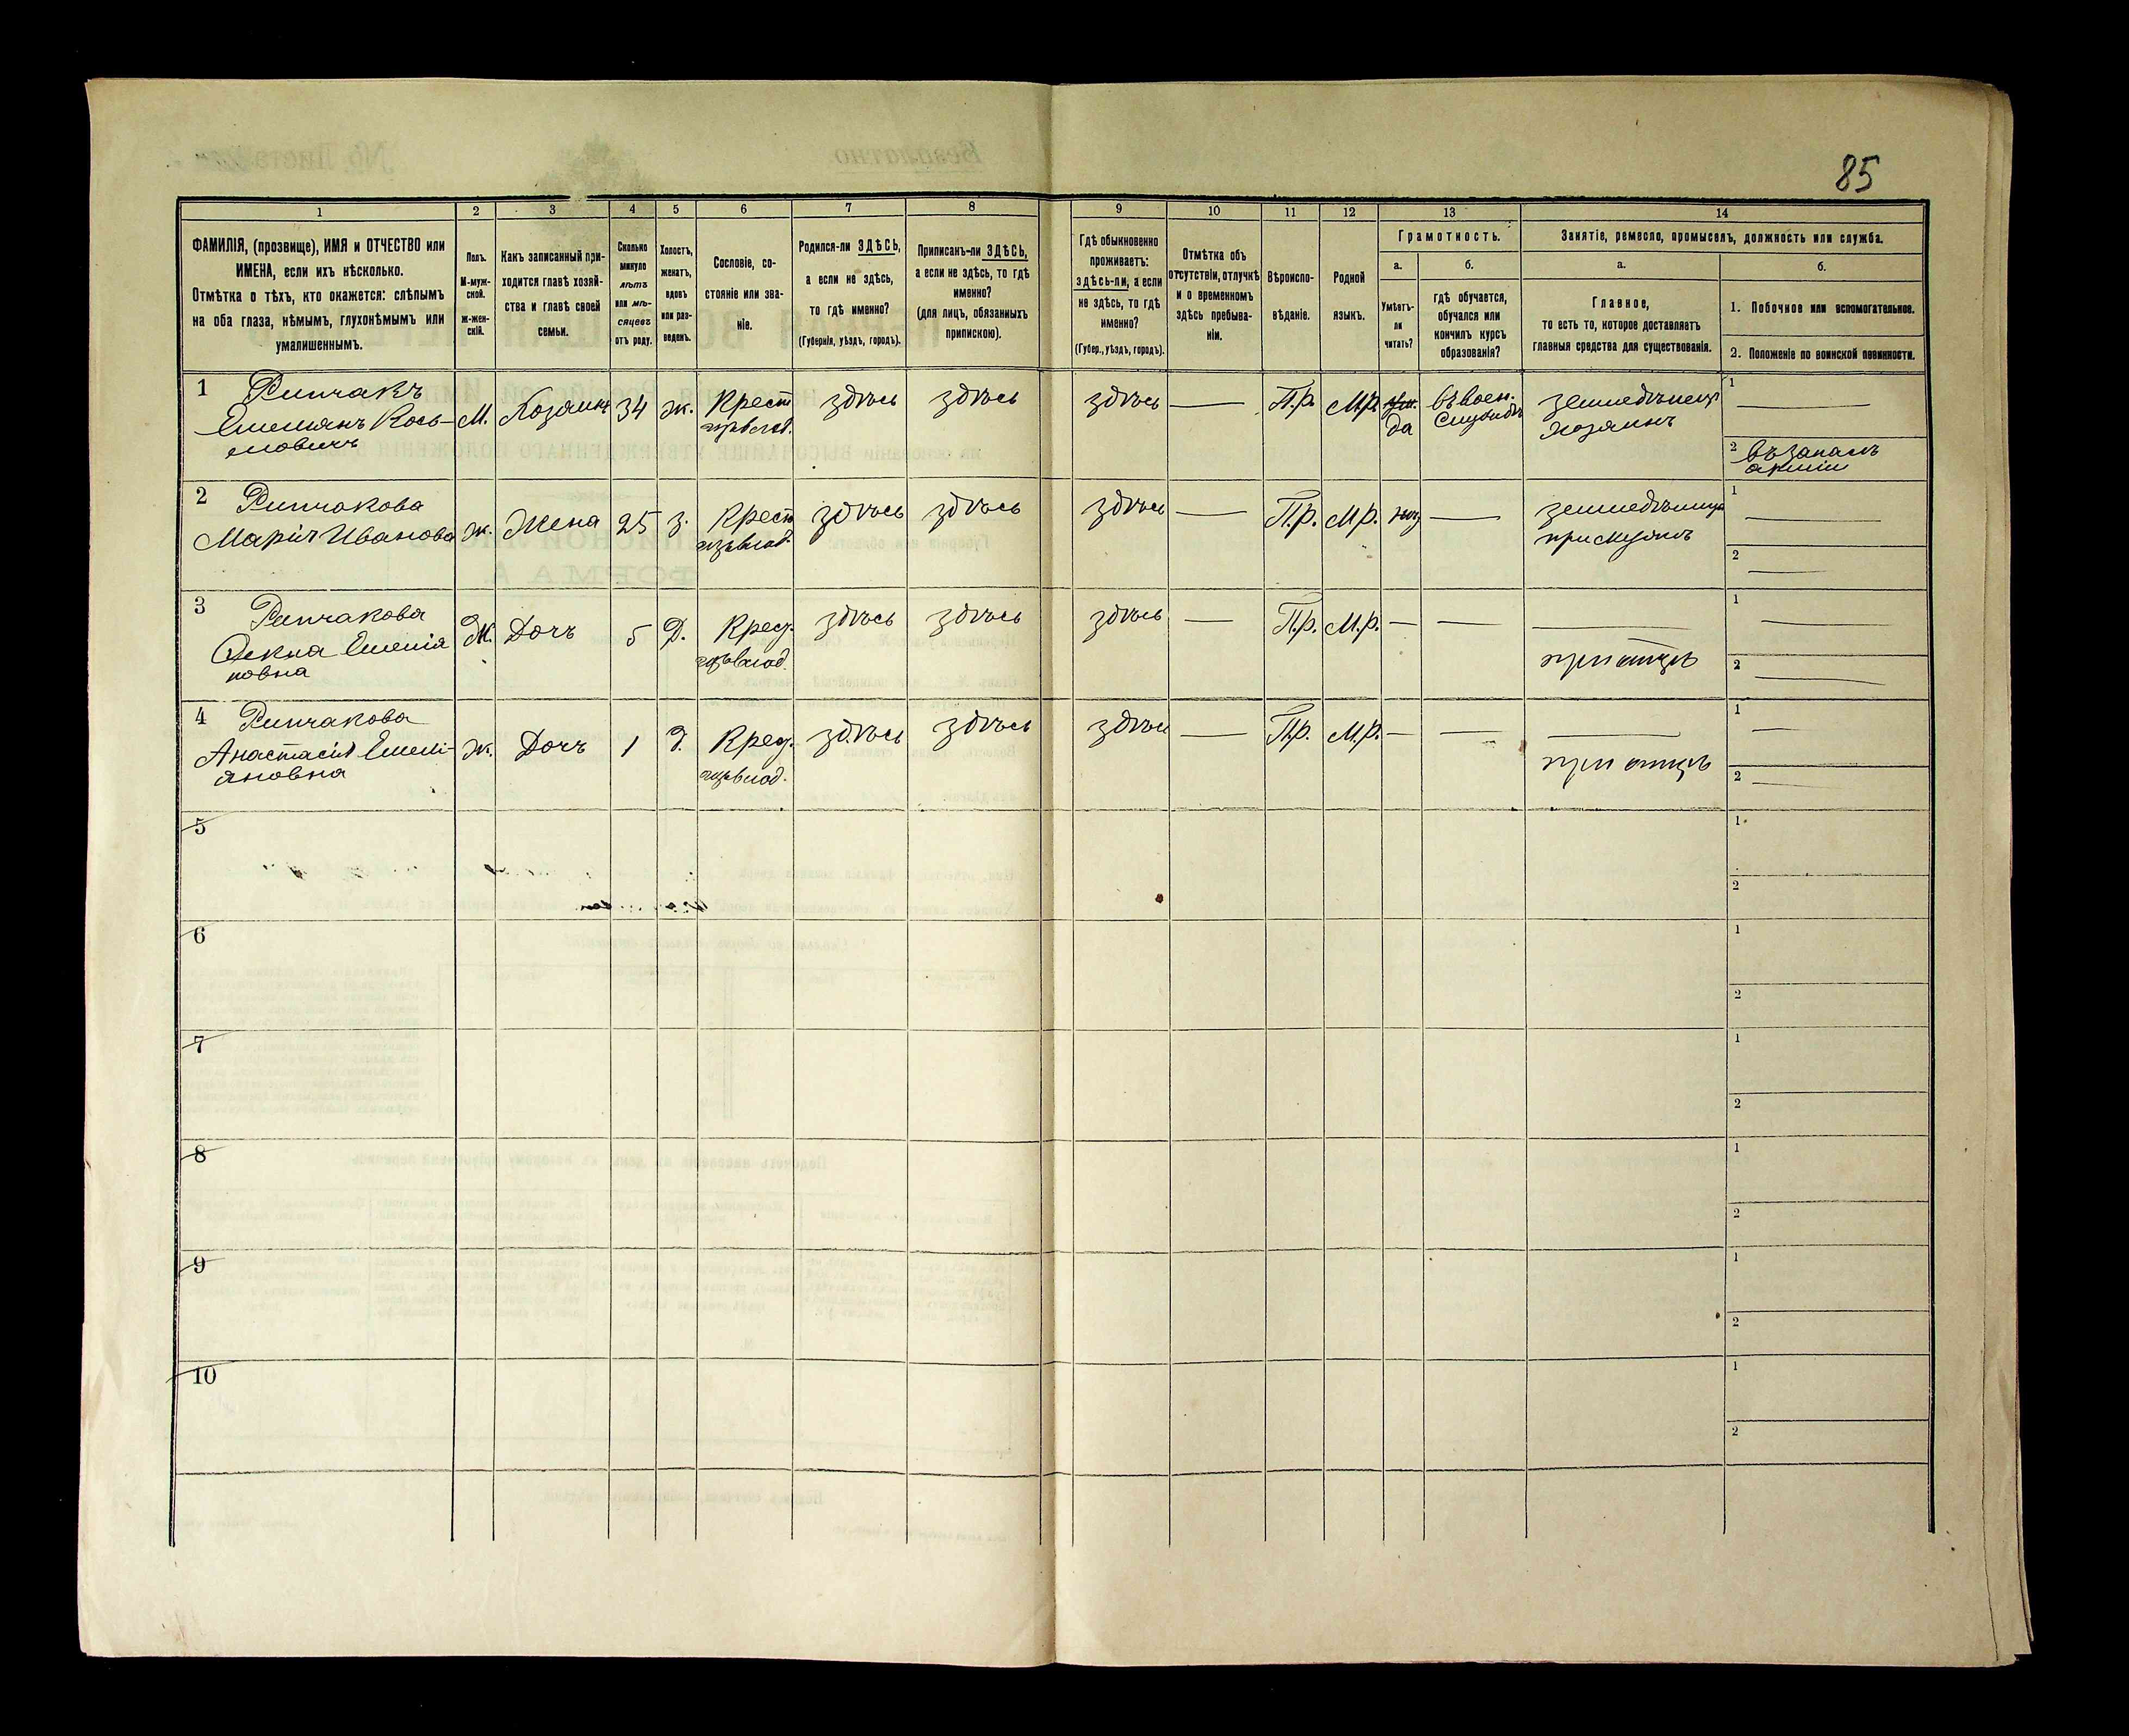 85
1 2 3 4 5 6 7 8 9 10 11 12 13 14
ФАМИЛІЯ, (прозвище), ИМЯ и ОТЧЕСТВО или
ИМЕНА, если ихъ нѣсколько.
Отмѣтка о тѣхъ, кто окажется: слѣпымъ
на оба глаза, нѣмымъ, глухонѣмымъ или
умалишеннымъ.
Полъ.
М-муж-
ской.
ж-жен-
скій.
Какъ записанный при-
ходится главѣ хозяй-
ства и главѣ своей
семьи.
Сколько
минуло
лѣтъ
или мѣ-
сяцевъ
отъ роду.
Холостъ,
женатъ,
вдовъ
или раз-
веденъ.
Сословіе, со-
стояніе или зва-
ніе.
Родился-ли ЗДѢСЬ,
а если не здѣсь,
то гдѣ именно?
(Губернія, уѣздъ, городъ).
Приписанъ-ли ЗДѢСЬ,
а если не здѣсь, то гдѣ
именно?
(для лицъ, обязанныхъ
припискою).
Гдѣ обыкновенно
проживаетъ:
здѣсь-ли, а если
не здѣсь, то гдѣ
именно?
(Губер., уѣздъ, городъ).
Отмѣтка объ
отсутствіи, отлучкѣ
и о временномъ
здѣсь пребыва-
ніи.
Вѣроиспо-
вѣданіе.
Родной
языкъ.
Грамотность.
а.
Умѣетъ-
ли
читать?
б.
гдѣ обучается,
обучался или
кончилъ курсъ
образованія?
Занятіе, ремесло, промыселъ, должность или служба.
а.
Главное,
то есть то, которое доставляетъ
главныя средства для существованія.
б.
1. Побочное или вспомогательное.
2. Положеніе по воинской повинности.
1
Рипчакъ
Емельянъ Кось-
мовичъ
М.
Хозяинъ
34
ж.
Крест
здѣсь
здѣсь
здѣсь
П.р.
М.р.
да
въ воен.
земледѣлецъ
хозяинъ
1
2 въ запасѣ
арміи
2
Рипчакова
Марія Иванова
ж.
Жена
25
з.
Крест
здѣсь
здѣсь
здѣсь
П.р.
М.р.
земледѣлица
при мужѣ
1
2
3
Рипчакова
Ж.
Дочь
5
Д.
Крес.
здѣсь
здѣсь
здѣсь
П.р.
М.р.
при отцѣ
1
2
4
Рипчакова
Анастасія Емелі-
яновна
ж.
Дочь
1
Д.
Крес.
здѣсь
здѣсь
здѣсь
П.р.
М.р.
при отцѣ
1
2
5
1
2
6
1
2
7
1
2
8
1
2
9
1
2
10
1
2